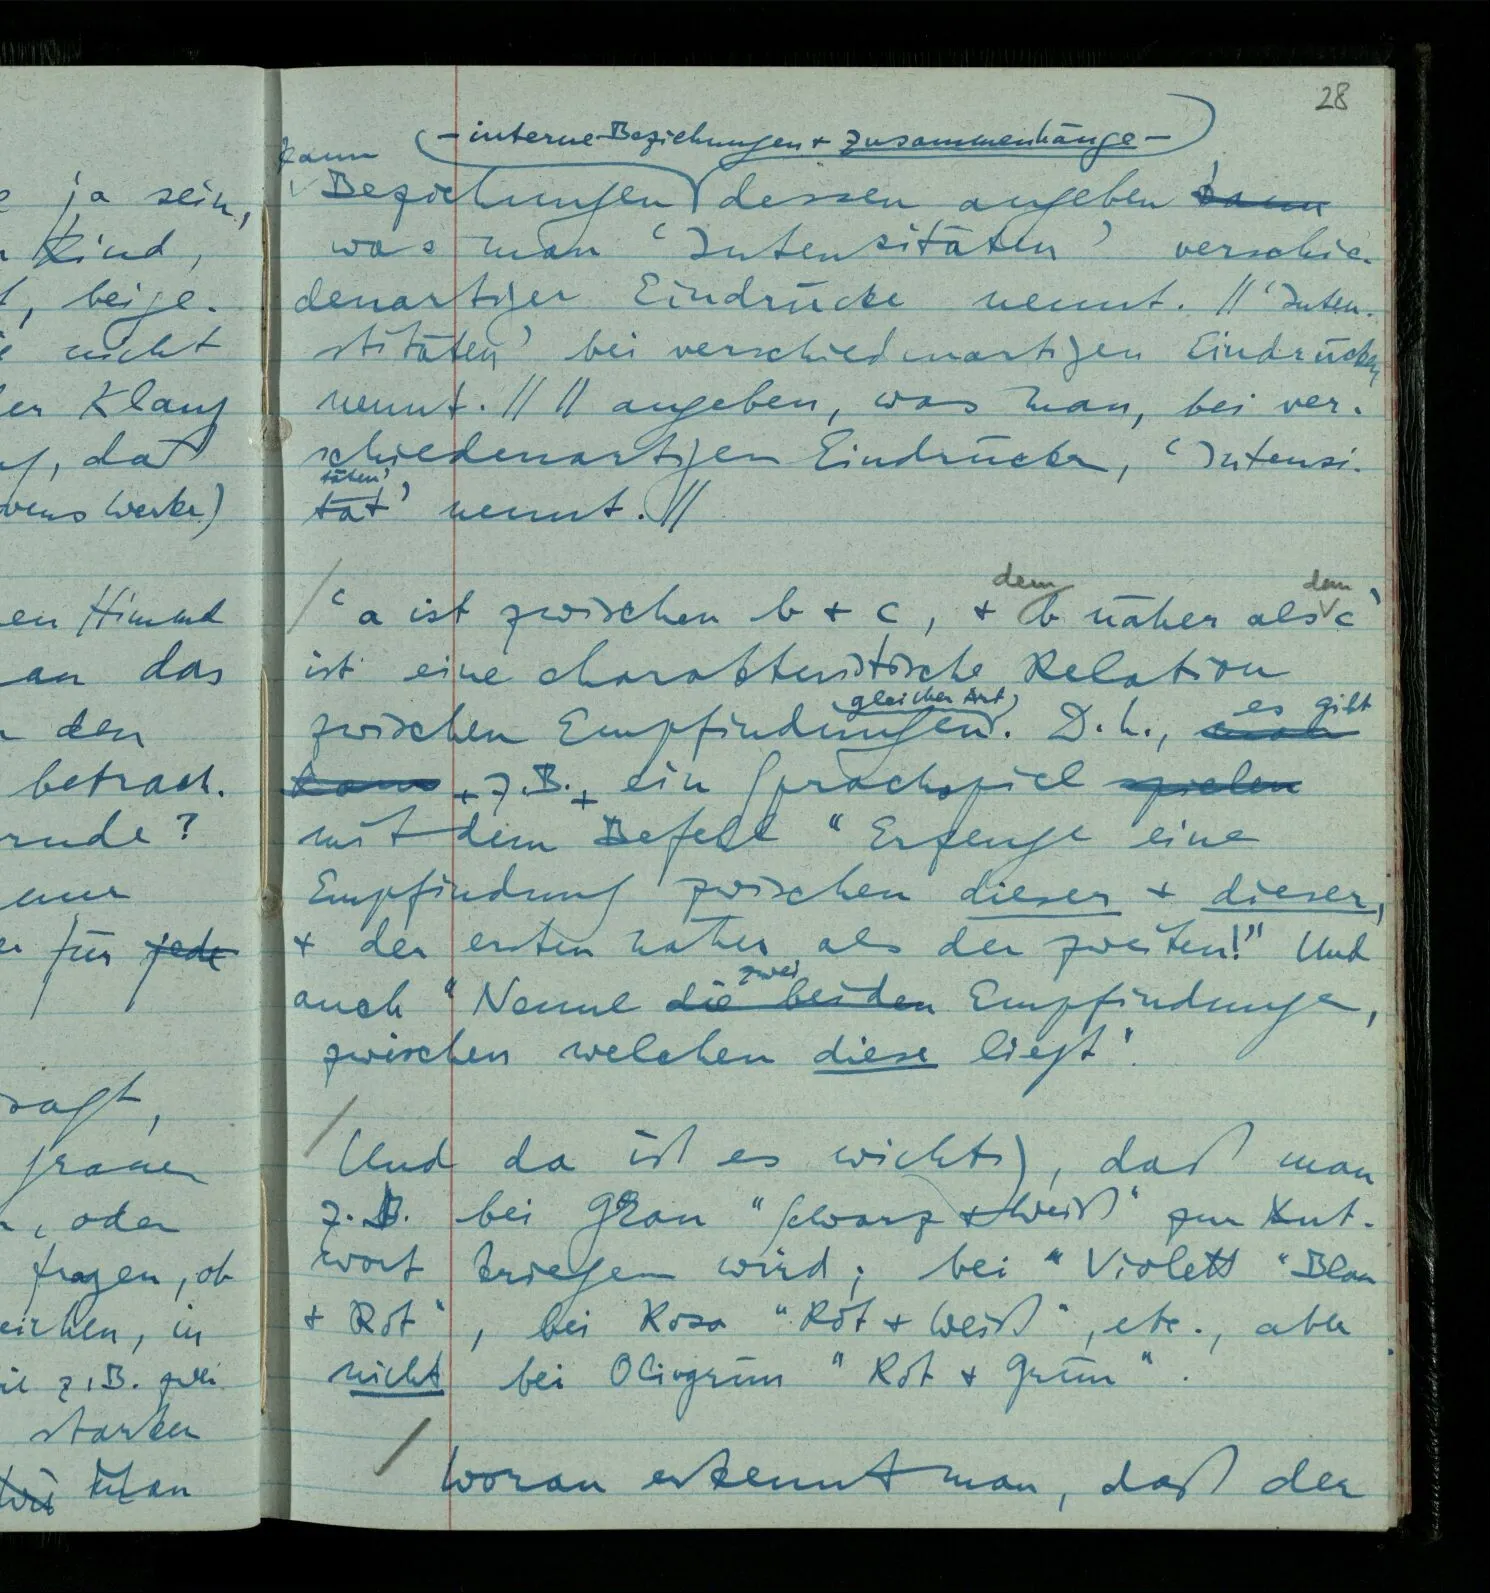 e ja sein,
n Kind,
t, beige-
nicht
er Klang
, daß
Werke)
en Himmel
an das
den
betrach-
rade?
nur
er für jede
sagt,
grauen
, oder
fragen, ob
eichen, in
z.B. zwei
starken
man
28
– interne Beziehungen + Zusammenhänge –
kann
Beziehungen dessen angeben kann
was man ‘Intensitäten’ verschie-
denartiger Eindrücke nennt. // ‘Inten-
sitäten’ bei verschiedenartigen Eindrücken
nennt. // // angeben, was man, bei ver-
schiedenartigen Eindrücken, ‘Intensi-
täten’
tät’ nennt. //
dem dem
/ ‘a ist zwischen b + c, + b näher als c’
ist eine charakteristische Relation
gleicher Art
zwischen Empfindungen. D.h., man es gibt
kann z.B. ein Sprachspiel spielen
mit dem Befehl “Erzeuge eine
Empfindung zwischen dieser + dieser,
+ der ersten näher als der zweiten!” Und
zwei
auch “Nenne die beiden Empfindungen,
zwischen welchen diese liegt”.
/ Und da ist es wichtig, daß man
z.B. bei Grau “Schwarz + Weiß” zur Ant-
wort kriegen wird; bei “Violett “Blau
+ Rot”, bei Rosa “Rot + Weiß”, etc., aber
nicht bei Olivgrün “Rot + Grün”.
/ Woran erkennt man, daß der